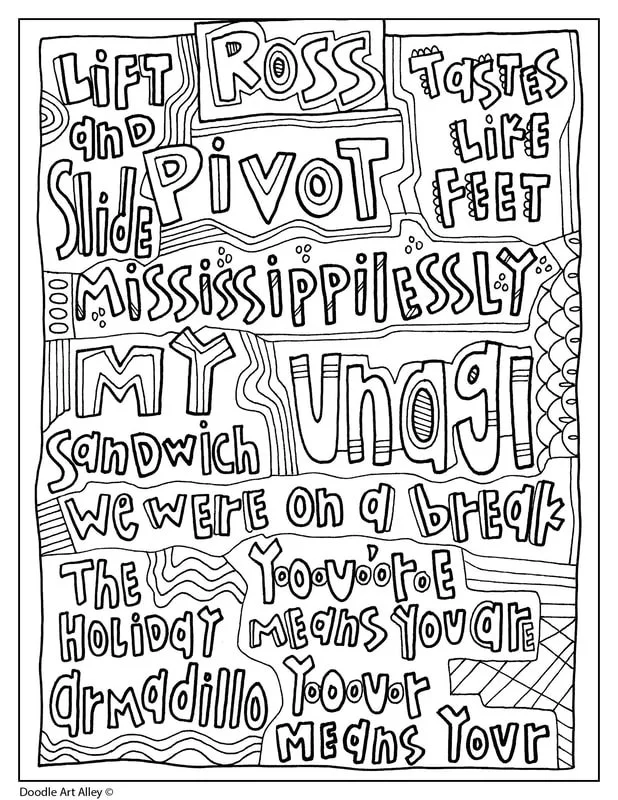 ROSS
LiFT
and
Slide
PiVOT
TaSTES
LIKE
FEET
MISSISSIPPILESSLY
MY
SandWicH
unagi
We WERE on a bReak
THE
HOLiDAY
aRMadillo
YOOOU'O'R'E
MEans YOU aRE
YOOOUR
MEans YOUR
Doodle Art Alley ©